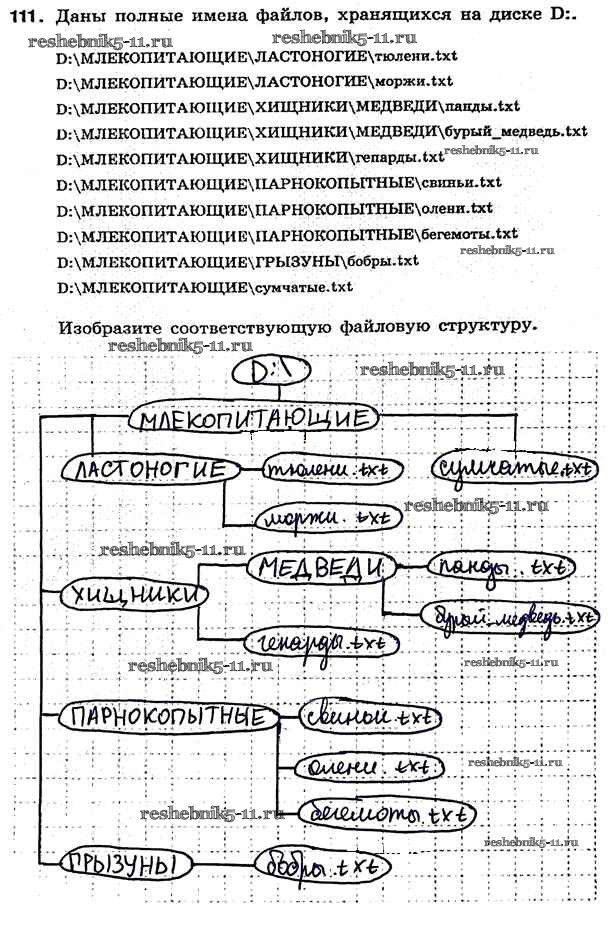 111. Даны полные имена файлов, хранящихся на диске D:.
reshebnik5-11.ru reshebnik5-11.ru
D:\МЛЕКОПИТАЮЩИЕ\ЛАСТОНОГИЕ\тюлени.txt
D:\МЛЕКОПИТАЮЩИЕ\ЛАСТОНОГИЕ\моржи.txt
D:\МЛЕКОПИТАЮЩИЕ\ХИЩНИКИ\МЕДВЕДИ\панды.txt
D:\МЛЕКОПИТАЮЩИЕ\ХИЩНИКИ\МЕДВЕДИ\бурый_медведь.txt
D:\МЛЕКОПИТАЮЩИЕ\ХИЩНИКИ\гепарды.txt reshebnik5-11.ru
D:\МЛЕКОПИТАЮЩИЕ\ПАРНОКОПЫТНЫЕ\свиньи.txt
D:\МЛЕКОПИТАЮЩИЕ\ПАРНОКОПЫТНЫЕ\олени.txt
D:\МЛЕКОПИТАЮЩИЕ\ПАРНОКОПЫТНЫЕ\бегемоты.txt
reshebnik5-11.ru
D:\МЛЕКОПИТАЮЩИЕ\ГРЫЗУНЫ\бобры.txt
D:\МЛЕКОПИТАЮЩИЕ\сумчатые.txt
Изобразите соответствующую файловую структуру.
reshebnik5-11.ru
D:\ reshebnik5-11.ru
МЛЕКОПИТАЮЩИЕ
ЛАСТОНОГИЕ тюлени.txt сумчатые.txt
reshebnik5-11.ru
моржи.txt
reshebnik5-11.ru
МЕДВЕДИ панды.txt
ХИЩНИКИ
бурый_медведь.txt
гепарды.txt
reshebnik5-11.ru reshebnik5-11.ru
ПАРНОКОПЫТНЫЕ свиньи.txt
олени.txt reshebnik5-11.ru
reshebnik5-11.ru бегемоты.txt
reshebnik5-11.ru
ГРЫЗУНЫ бобры.txt